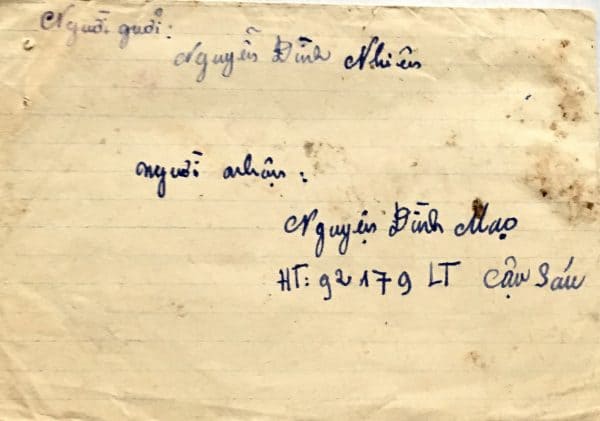 Người gửi:
Nguyễn Đình Nhiên
người nhận:
Nguyễn Đình Mạo
HT: 92179 LT Cậu Sáu